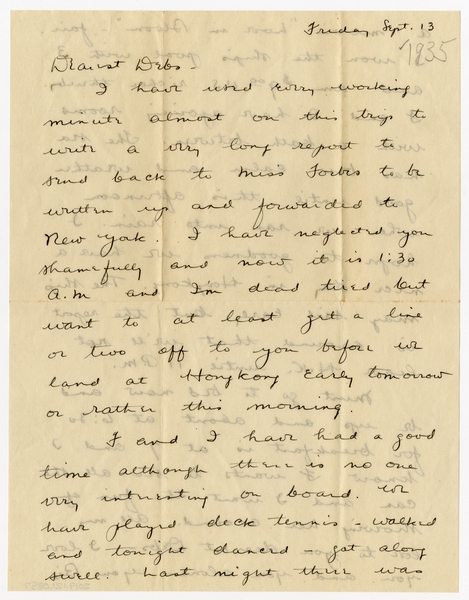 Friday Sept. 13
1935
Dearest Debs -
I have used every working
minute almost on this trip to
write a very long report to
send back to Miss Forbes to be
written up and forwarded to
New York. I have neglected you
shamefully and now it is 1:30
A.M and I'm dead tired but
want to at least get a line
or two off to you before we
land at Hongkong early tomorrow
or rather this morning.
F and I have had a good
time although there is no one
very interesting on board. We
have played deck tennis - walked
and tonight danced - got along
swell. Last night there was